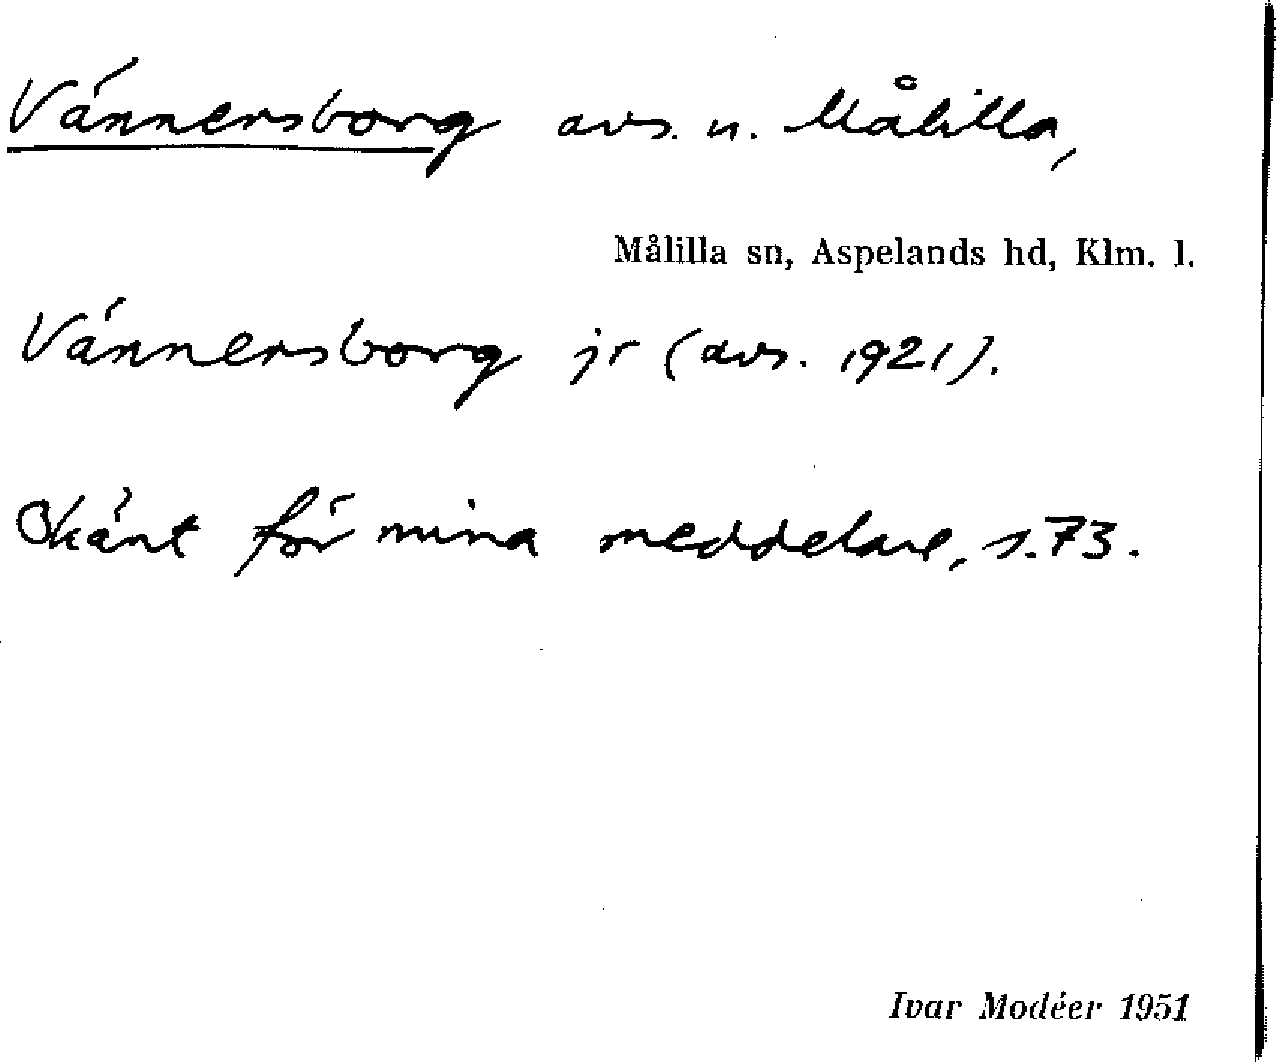 Vännersborg avs. u. Målilla,
Målilla sn, Aspelands hd, Klm. l.
Vännersborg jr (avs. 1921).
Okänt för mina meddelare, s. 73.
Ivar Modéer 1951